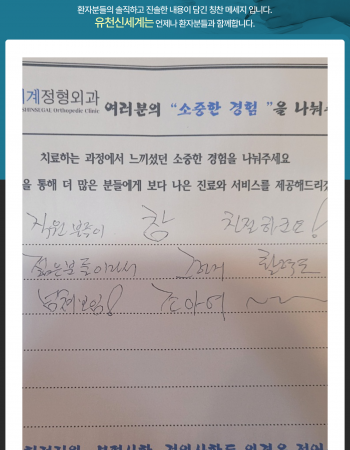 환자분들의 솔직하고 진솔한 내용이 담긴 칭찬 메세지 입니다.
유천신세계는 언제나 환자분들과 함께합니다.
계정형외과
Orthopedic Clinic
여러분의 “소중한 경험 ”을 나눠
치료하는 과정에서 느끼셨던 소중한 경험을 나눠주세요
을 통해 더 많은 분들에게 보다 나은 진료와 서비스를 제공해드리
직원분들이 참 친절하고요!
젊은분들이라서 활력도
넘쳐보임! 조아여 ~~